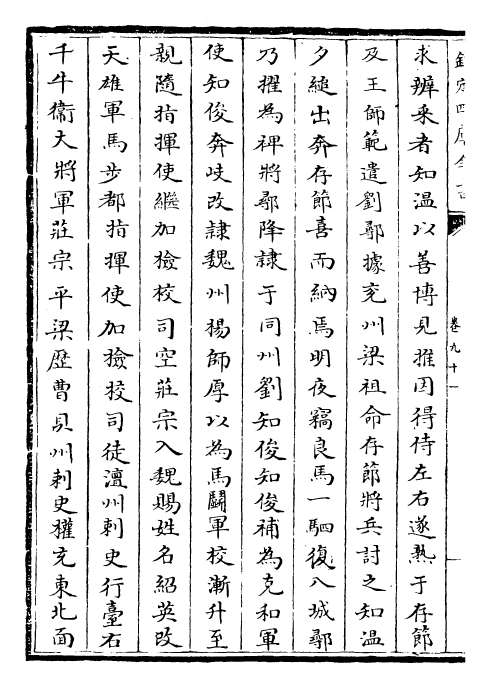 欽定四庫全書
卷九十一
求辨采者知溫以善博見推因得侍左右遂熟于存節
及王師範遣劉鄩據兖州梁祖命存節將兵討之知溫
夕縋出奔存節喜而納焉明夜竊良馬一駟復入城鄩
乃擢為裨將鄩降隷于同州劉知俊知俊補為克和軍
使知俊奔岐改隷魏州楊師厚以為馬鬭軍校漸升至
親隨指揮使繼加檢校司空莊宗入魏賜姓名紹英改
天雄軍馬步都指揮使加檢校司徒澶州刺史行臺右
千牛衛大將軍莊宗平梁歷曹貝州刺史權充東北面